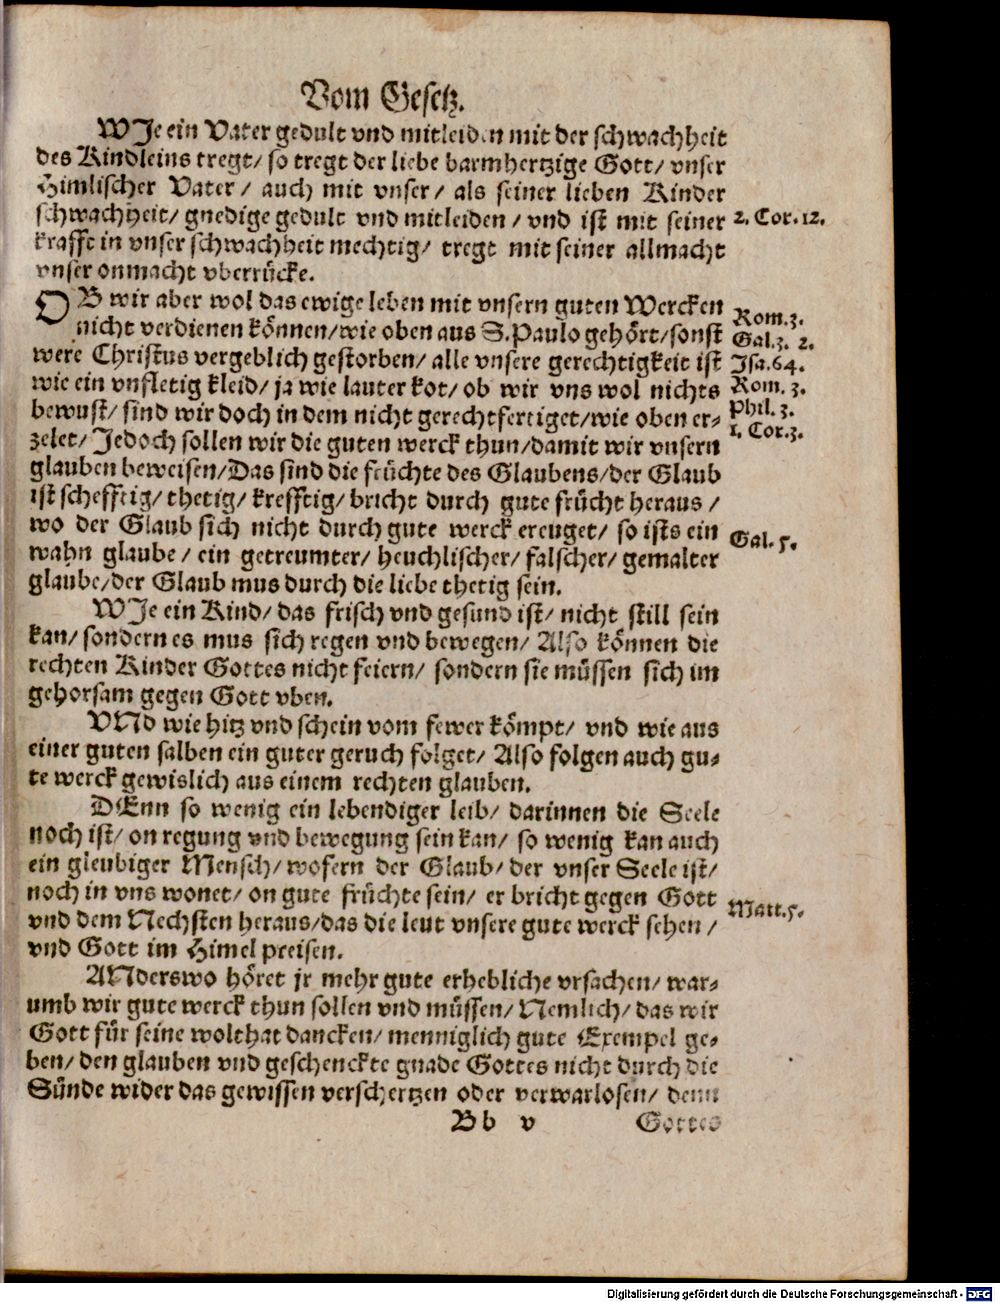 Vom Gesetz.
WJe ein Vater gedult vnd mitleiden mit der schwachheit
des Kindleins tregt/ so tregt der liebe barmhertzige Gott/ vnser
Himlischer Vater / auch mit vnser/ als seiner lieben Kinder
schwachheit/ gnedige gedult vnd mitleiden / vnd ist mit seiner
2. Cor. 12.
krafft in vnser schwachheit mechtig/ tregt mit seiner allmacht
vnser onmacht vberrücke.
OB wir aber wol das ewige leben mit vnsern guten Wercken
Rom. 3.
nicht verdienen können/wie oben aus S. Paulo gehört/sonst
Gal. 3. 2.
were Christus vergeblich gestorben/ alle vnsere gerechtigkeit ist
Jsa. 64.
wie ein vnfletig kleid/ ja wie lauter kot/ ob wir vns wol nichts
Rom. 3.
bewust/ sind wir doch in dem nicht gerechtfertiget/wie oben er-
Phil. 3.
zelet/ Jedoch sollen wir die guten werck thun/damit wir vnsern
1. Cor. 3.
glauben beweisen/Das sind die früchte des Glaubens/der Glaub
ist schefftig/ thetig/ krefftig/ bricht durch gute frücht heraus /
wo der Glaub sich nicht durch gute werck ereuget/ so ists ein
Gal. 5.
wahn glaube/ ein getreumter/ heuchlischer/ falscher/ gemalter
glaube/der Glaub mus durch die liebe thetig sein.
WJe ein Kind/ das frisch vnd gesund ist/ nicht still sein
kan/ sondern es mus sich regen vnd bewegen/ Also können die
rechten Kinder Gottes nicht feiern/ sondern sie müssen sich im
gehorsam gegen Gott vben.
VNd wie hitz vnd schein vom fewer kömpt/ vnd wie aus
einer guten salben ein guter geruch folget/ Also folgen auch gu-
te werck gewislich aus einem rechten glauben.
DEnn so wenig ein lebendiger leib/ darinnen die Seele
noch ist/ on regung vnd bewegung sein kan/ so wenig kan auch
ein gleubiger Mensch/ wofern der Glaub/ der vnser Seele ist/
noch in vns wonet/ on gute früchte sein/ er bricht gegen Gott
Matt. 5.
vnd dem Nechsten heraus/das die leut vnsere gute werck sehen /
vnd Gott im Himel preisen.
ANderswo höret jr mehr gute erhebliche vrsachen/ war-
umb wir gute werck thun sollen vnd müssen/ Nemlich/ das wir
Gott für seine wolthat dancken/ menniglich gute Exempel ge-
ben/ den glauben vnd geschenckte gnade Gottes nicht durch die
Sünde wider das gewissen verschertzen oder verwarlosen/ denn
Bb v
Gottes
Digitalisierung gefördert durch die Deutsche Forschungsgemeinschaft - DFG